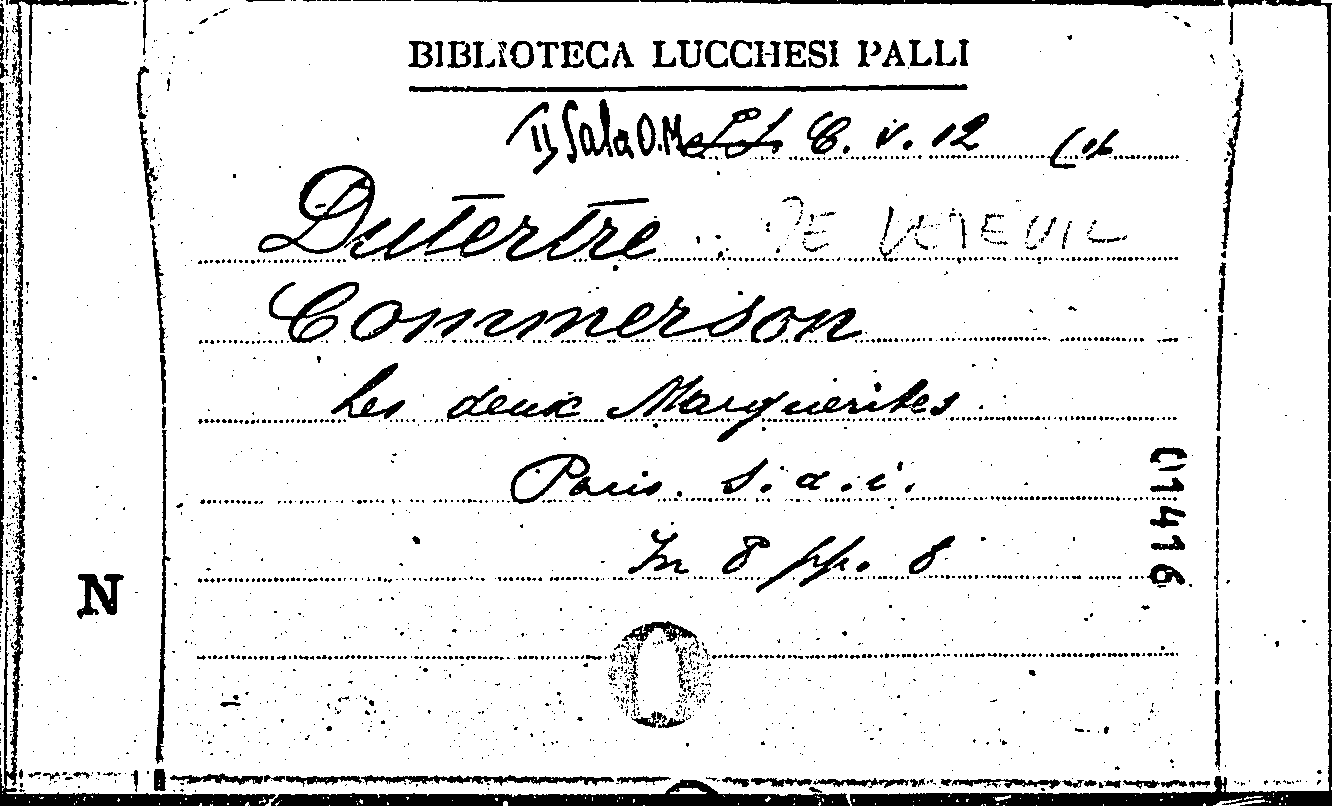 BIBLIOTECA LUCCHESI PALLI
II Sala O.M. L.L. C. V. 12 (16
Dutertre DE VETEUIL
Commerson
Les deux Marguerites
Paris. S. a. i.
In 8 pp. 8
01416
N